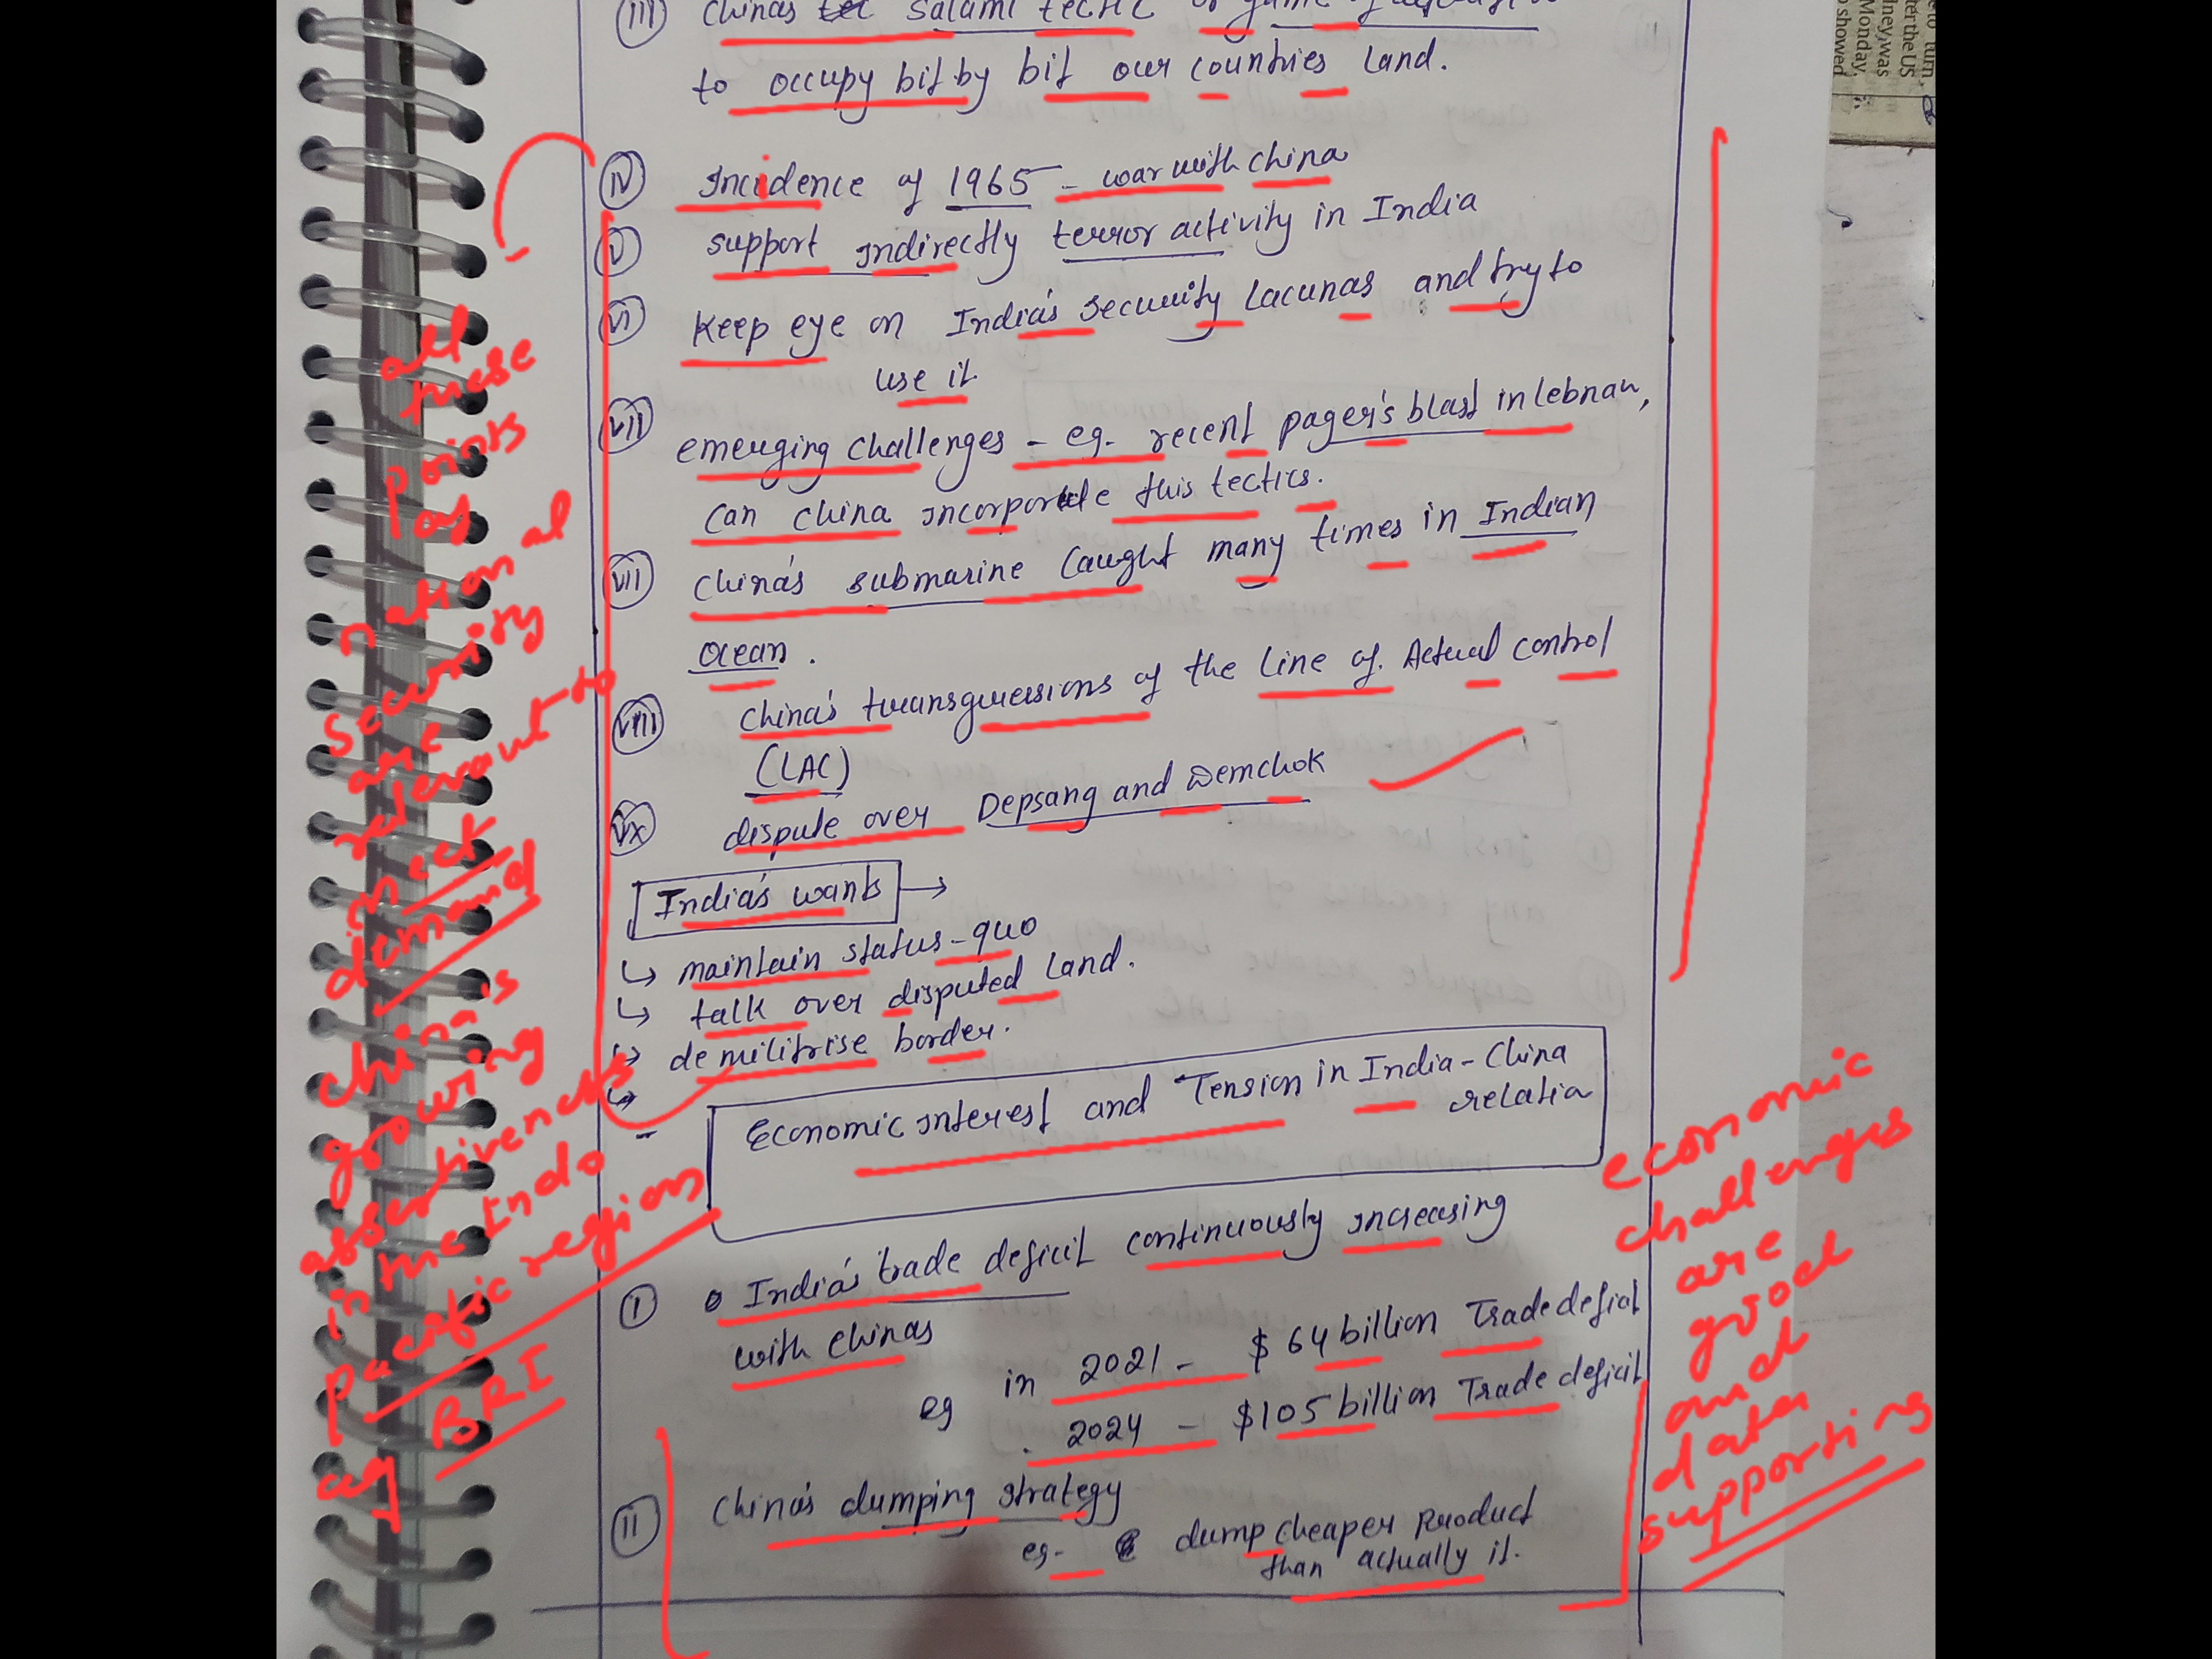 (III) Chinas salami tectic or game of
to occupy bit by bit our countries land.
(IV) Incidence of 1965 - war with China
(V) support indirectly terror activity in India
(VI) Keep eye on India's security Lacunas and try to
use it
(VII) emerging challenges - eg. recent pager's blast in lebnan,
can china incorporate this tectics.
(VII) China's submarine caught many times in Indian
Ocean.
(VIII) China's transgressions of the Line of Actual control
(LAC)
dispute over Depsang and Demchok
India's wants →
↳ maintain status-quo
↳ talk over disputed land.
↳ demilitrise border.
↳
Economic interest and Tension in India-China
relation
(I) India's trade deficit continuously increasing
with Chinas
eg in 2021 - $64 billion Trade deficit
2024 - $105 billion Trade deficit
(II) China's dumping strategy
eg- dump cheaper Product
than actually it.
all
these
points
of
national
security
are
relevant to
demand
China's
growing
assertiveness
in the Indo
pacific region
BRI
economic
challenges
are
good
and
data
supporting
to turn
der the US
dney, was
Monday,
showed